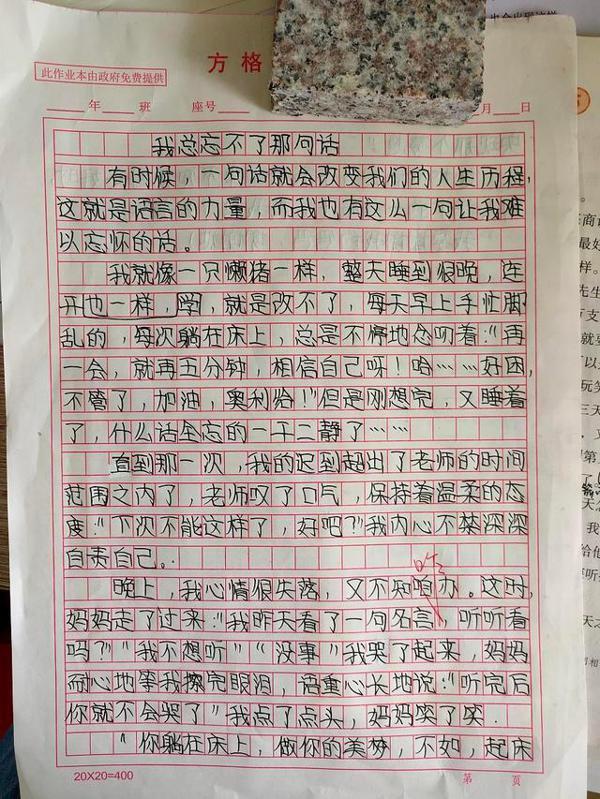 此作业本由政府免费提供
方格
年 班 座号 月 日
我总忘不了那句话
有时候，一句话就会改变我们的人生历程，
这就是语言的力量，而我也有这么一句让我难
以忘怀的话。
我就像一只懒猪一样，整天睡到很晚，连
开也一样，学，就是改不了，每天早上手忙脚
乱的，每次躺在床上，总是不停地念叨着：“再
一会，就再五分钟，相信自己呀！哈……好困，
不管了，加油，奥利给！”但是刚想完，又睡着
了，什么话全忘的一干二静了……
直到那一次，我的迟到超出了老师的时间
范围之内了，老师叹了口气，保持着温柔的态
度：“下次不能这样了，好吧？”我内心不禁深深
自责自己。
咋
晚上，我心情很失落，又不知咱办。这时，
妈妈走了过来：“我昨天看了一句名言，听听看
吗？”“我不想听”“没事”我哭了起来，妈妈
耐心地拿我擦完眼泪，语重心长地说：“听完后
你就不会哭了”我点了点头，妈妈笑了笑．
“你躺在床上，做你的美梦，不如，起床
20X20=400
第 页